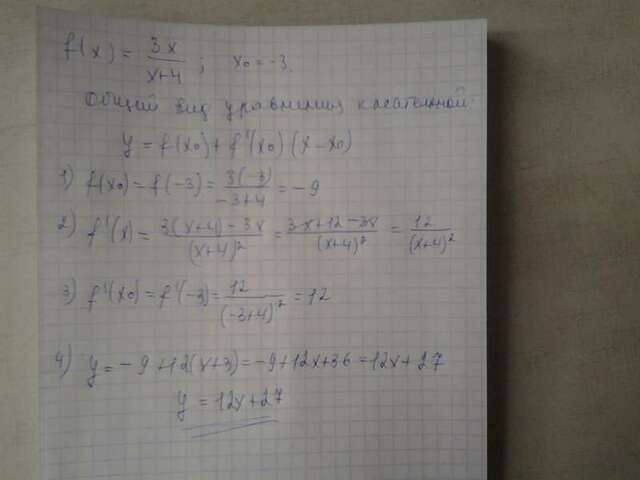 f(x) = 3x/(x+4) ; x0 = -3.
Общий вид уравнения касательной
y = f(x0) + f'(x0)(x-x0)
1) f(x0) = f(-3) = 3(-3)/(-3+4) = -9
2) f'(x) = (3(x+4)-3x)/(x+4)² = (3x+12-3x)/(x+4)² = 12/(x+4)²
3) f'(x0) = f'(-3) = 12/(-3+4)² = 12
4) y = -9+12(x+3) = -9+12x+36 = 12x+27
y = 12x+27